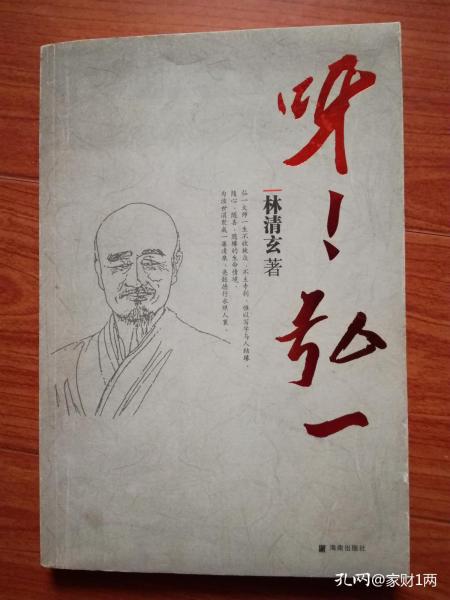 呀!弘一
林清玄 著
弘一大师一生不收徒众,不主寺刹,惟以写字与人结缘
随心、随喜、随缘的生命情境,
为浊世 成一番清凉, 德行永烁人寰。
海南出版社
孔网@家财1两